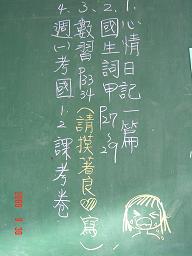 1.心情日記一篇
2.國生詞甲P27~29
3.數習P33 34(請摸著良心寫)
4.週(一)考國1.2課考卷